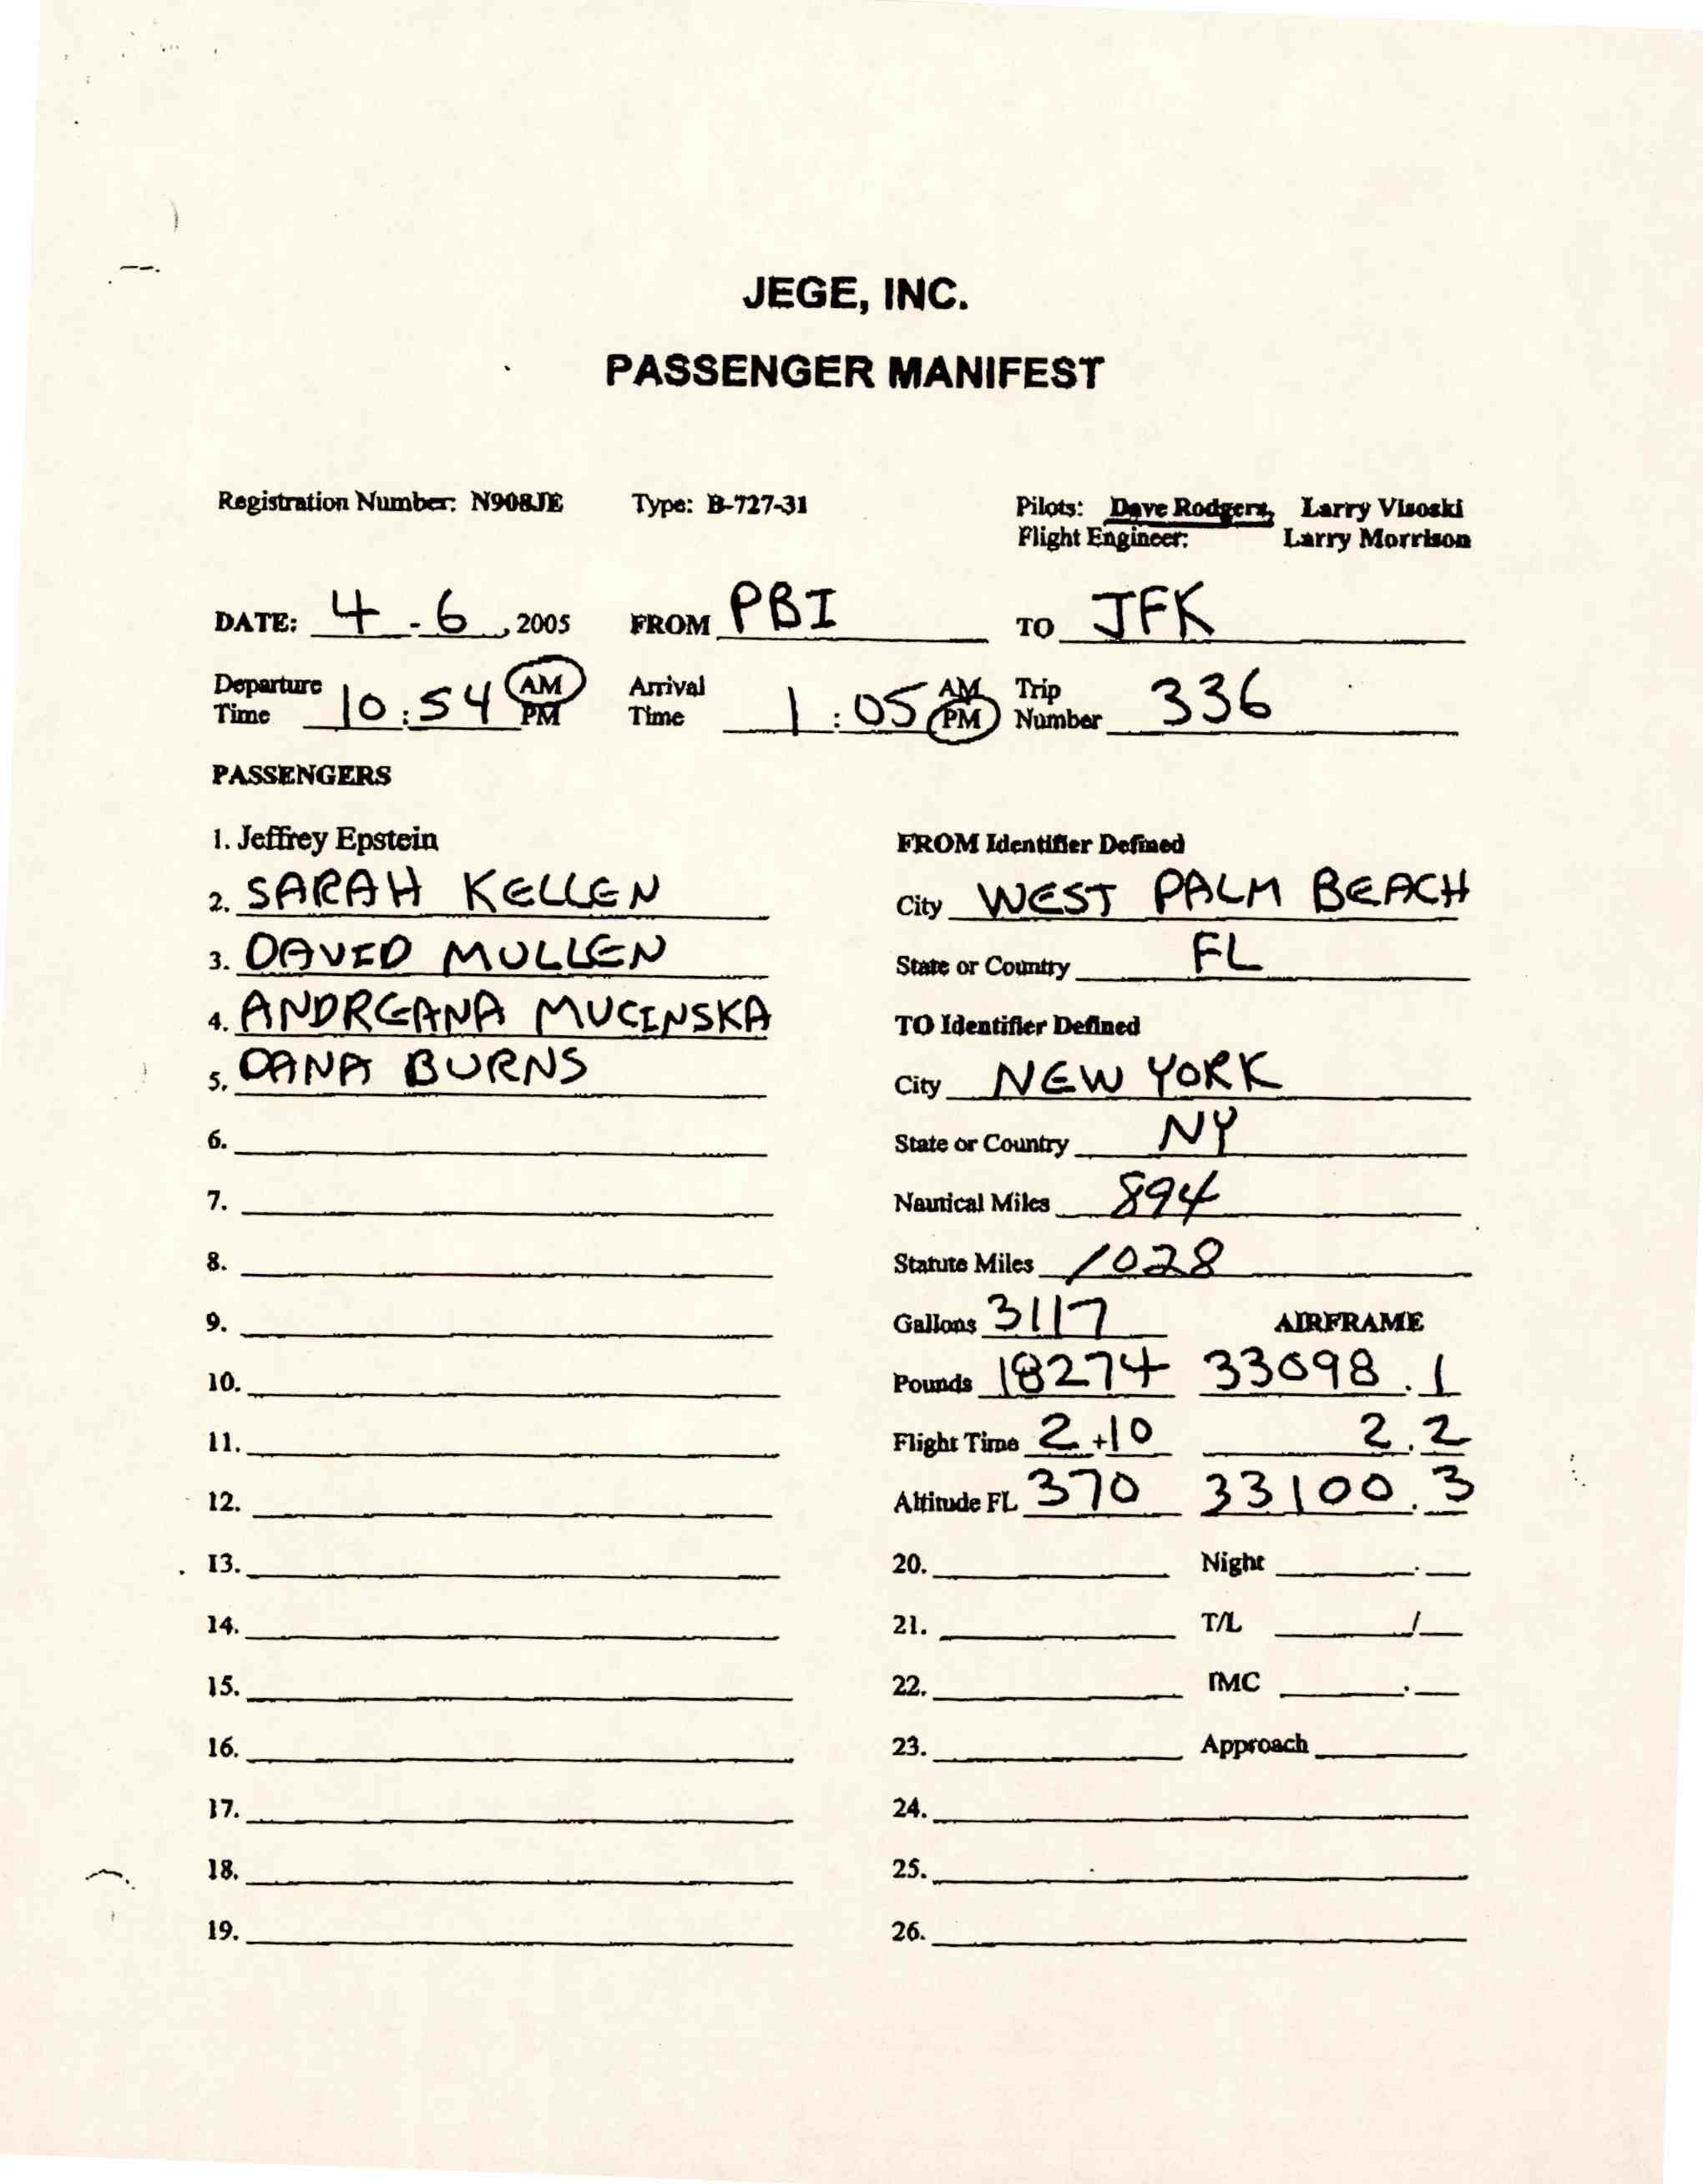 JEGE, INC.
PASSENGER MANIFEST
Registration Number: N908JE Type: B-727-31 Pilots: Dave Rodgers, Larry Visoski
Flight Engineer: Larry Morrison
DATE: 4 - 6, 2005 FROM PBI TO JFK
Departure Time 10:54 AM PM Arrival Time 1:05 AM PM Trip Number 336
PASSENGERS
1. Jeffrey Epstein FROM Identifier Defined
2. SARAH KELLEN City WEST PALM BEACH
3. DAVID MULLEN State or Country FL
4. ANDREANA MUCINSKA TO Identifier Defined
5. DANA BURNS City NEW YORK
6. State or Country NY
7. Nautical Miles 894
8. Statute Miles 1028
9. Gallons 3117 AIRFRAME
10. Pounds 18274 33098.1
11. Flight Time 2+10 2.2
12. Altitude FL 370 33100.3
13. 20. Night .
14. 21. T/L /
15. 22. IMC .
16. 23. Approach
17. 24.
18. 25.
19. 26.